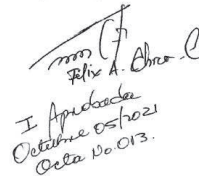 Felix A. Chro-C
I Aprobada
Octubre 05/2021
Acta No. 013.